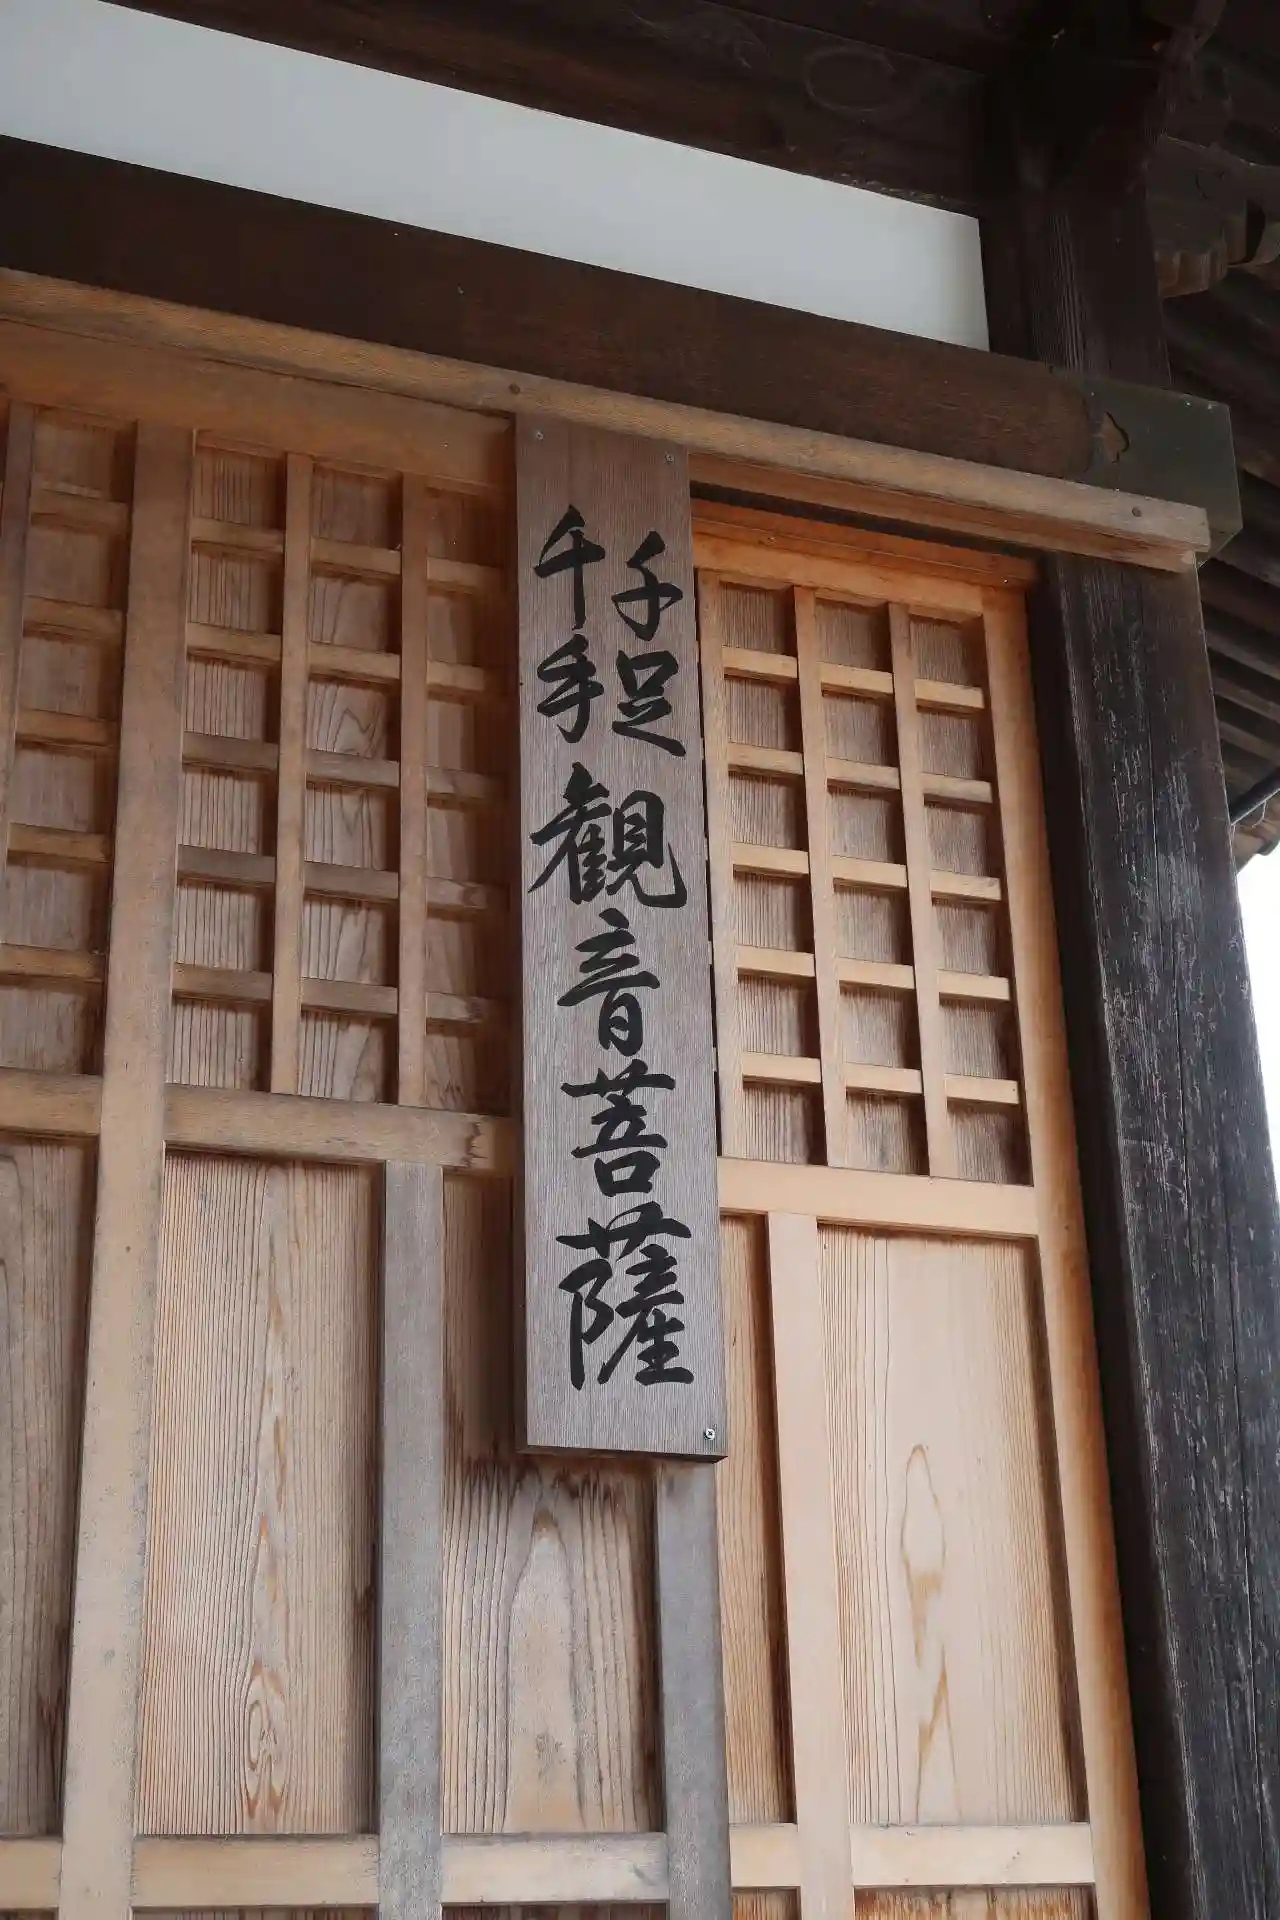 千手
千足
観音菩薩